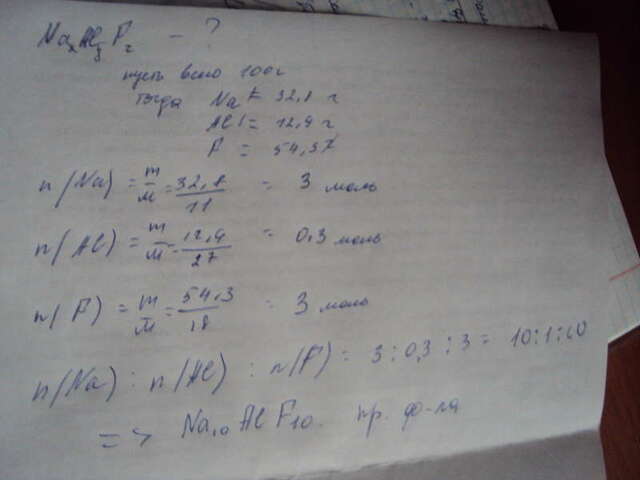 NaxAlyFz - ?
пусть всего 100 г
тогда Na = 32,8 г
Al = 12,9 г
F = 54,3 г
n(Na) = m/M = 32,8/11 = 3 моль
n(Al) = m/M = 12,9/27 = 0,3 моль
n(F) = m/M = 54,3/18 = 3 моль
n(Na) : n(Al) : n(F) = 3 : 0,3 : 3 = 10 : 1 : 10
=> Na10AlF10. пр. ф-ла